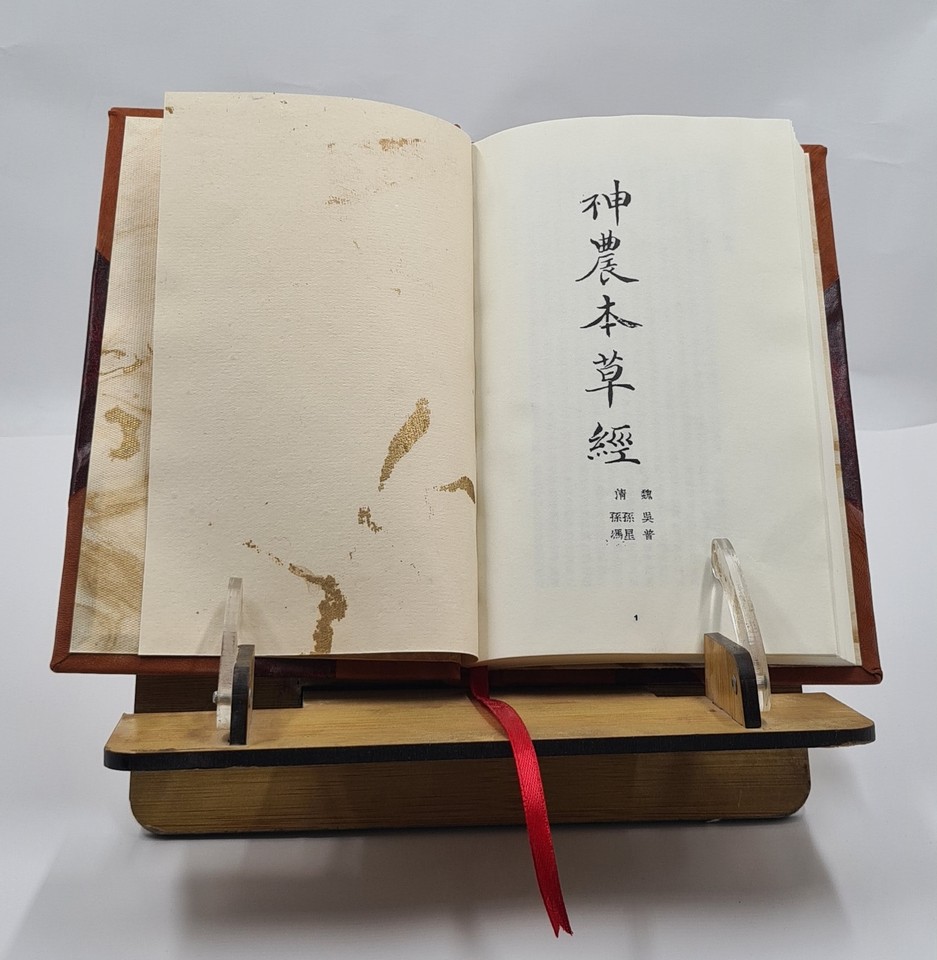 神農本草經
魏 吳普
清 孫星
孫馮
1